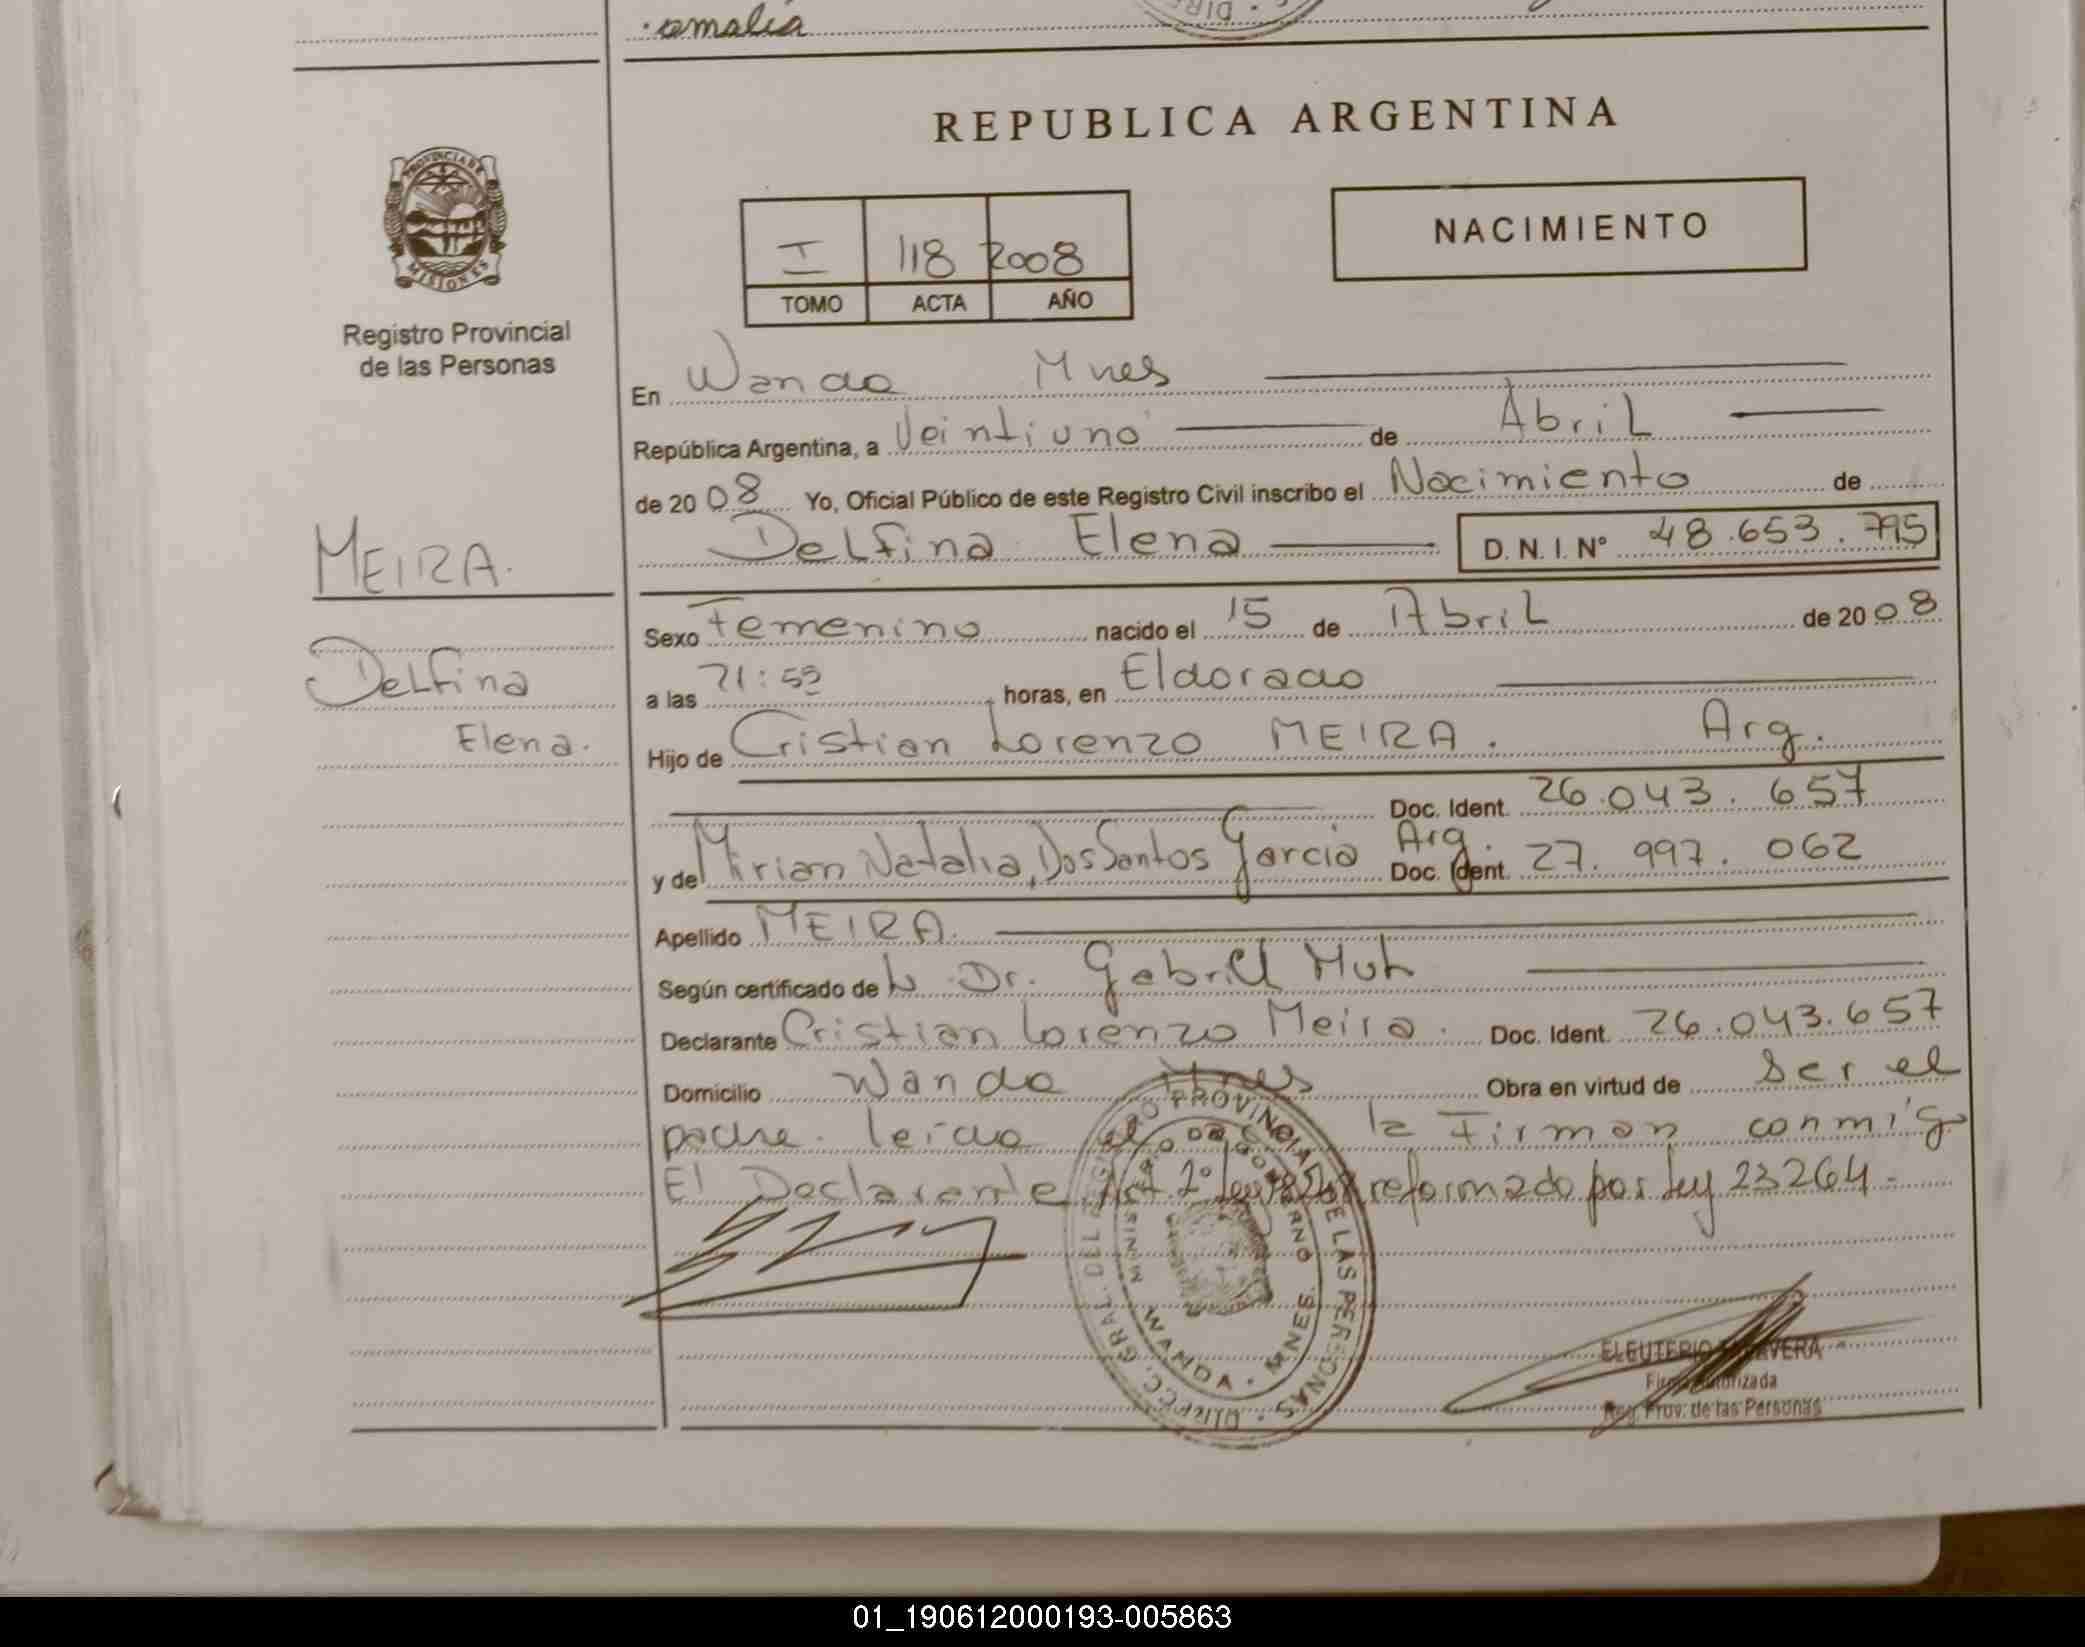 amalia
PROVINCIA DE
MISIONES
Registro Provincial
de las Personas
REPUBLICA ARGENTINA
NACIMIENTO
I 118 2008
TOMO ACTA AÑO
En Wanda Mnes
República Argentina, a Veintiuno de Abril
de 2008 Yo, Oficial Público de este Registro Civil inscribo el Nacimiento de
Delfina Elena D. N. I. Nº 48.653.795
MEIRA.
Delfina
Elena.
Sexo Femenino nacido el 15 de Abril de 2008
a las 21:59 horas, en Eldorado
Hijo de Cristian Lorenzo MEIRA. Arg.
Doc. Ident. 26.043.657
y de Mirian Natalia, Dos Santos Garcia Arg. Doc. Ident. 27.997.062
Apellido MEIRA.
Según certificado de Dr. Gabriel
Declarante Cristian Lorenzo Meira. Doc. Ident. 26.043.657
Domicilio Wanda Mnes Obra en virtud de Ser el
padre. leida el la Firman conmigo
El Declarante Art. 2º Ley reformado por Ley 23264.-
DIRECC. GRAL. DEL REGISTRO PROVINCIAL DE LAS PERSONAS
WANDA - MNES.
ELEUTERIO
Firma Autorizada
Reg. Prov. de las Personas
01_190612000193-005863